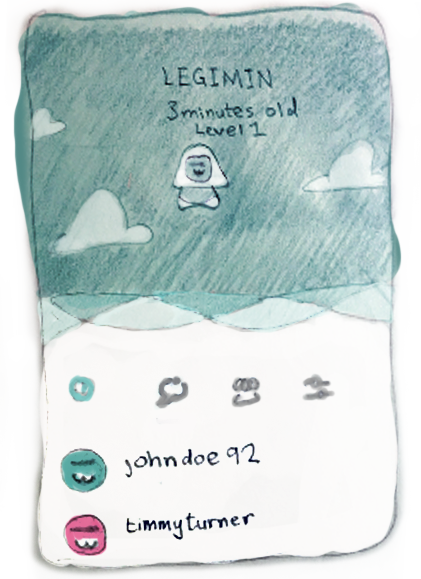 LEGIMIN
3minutes old
Level 1
johndoe92
timmyturner